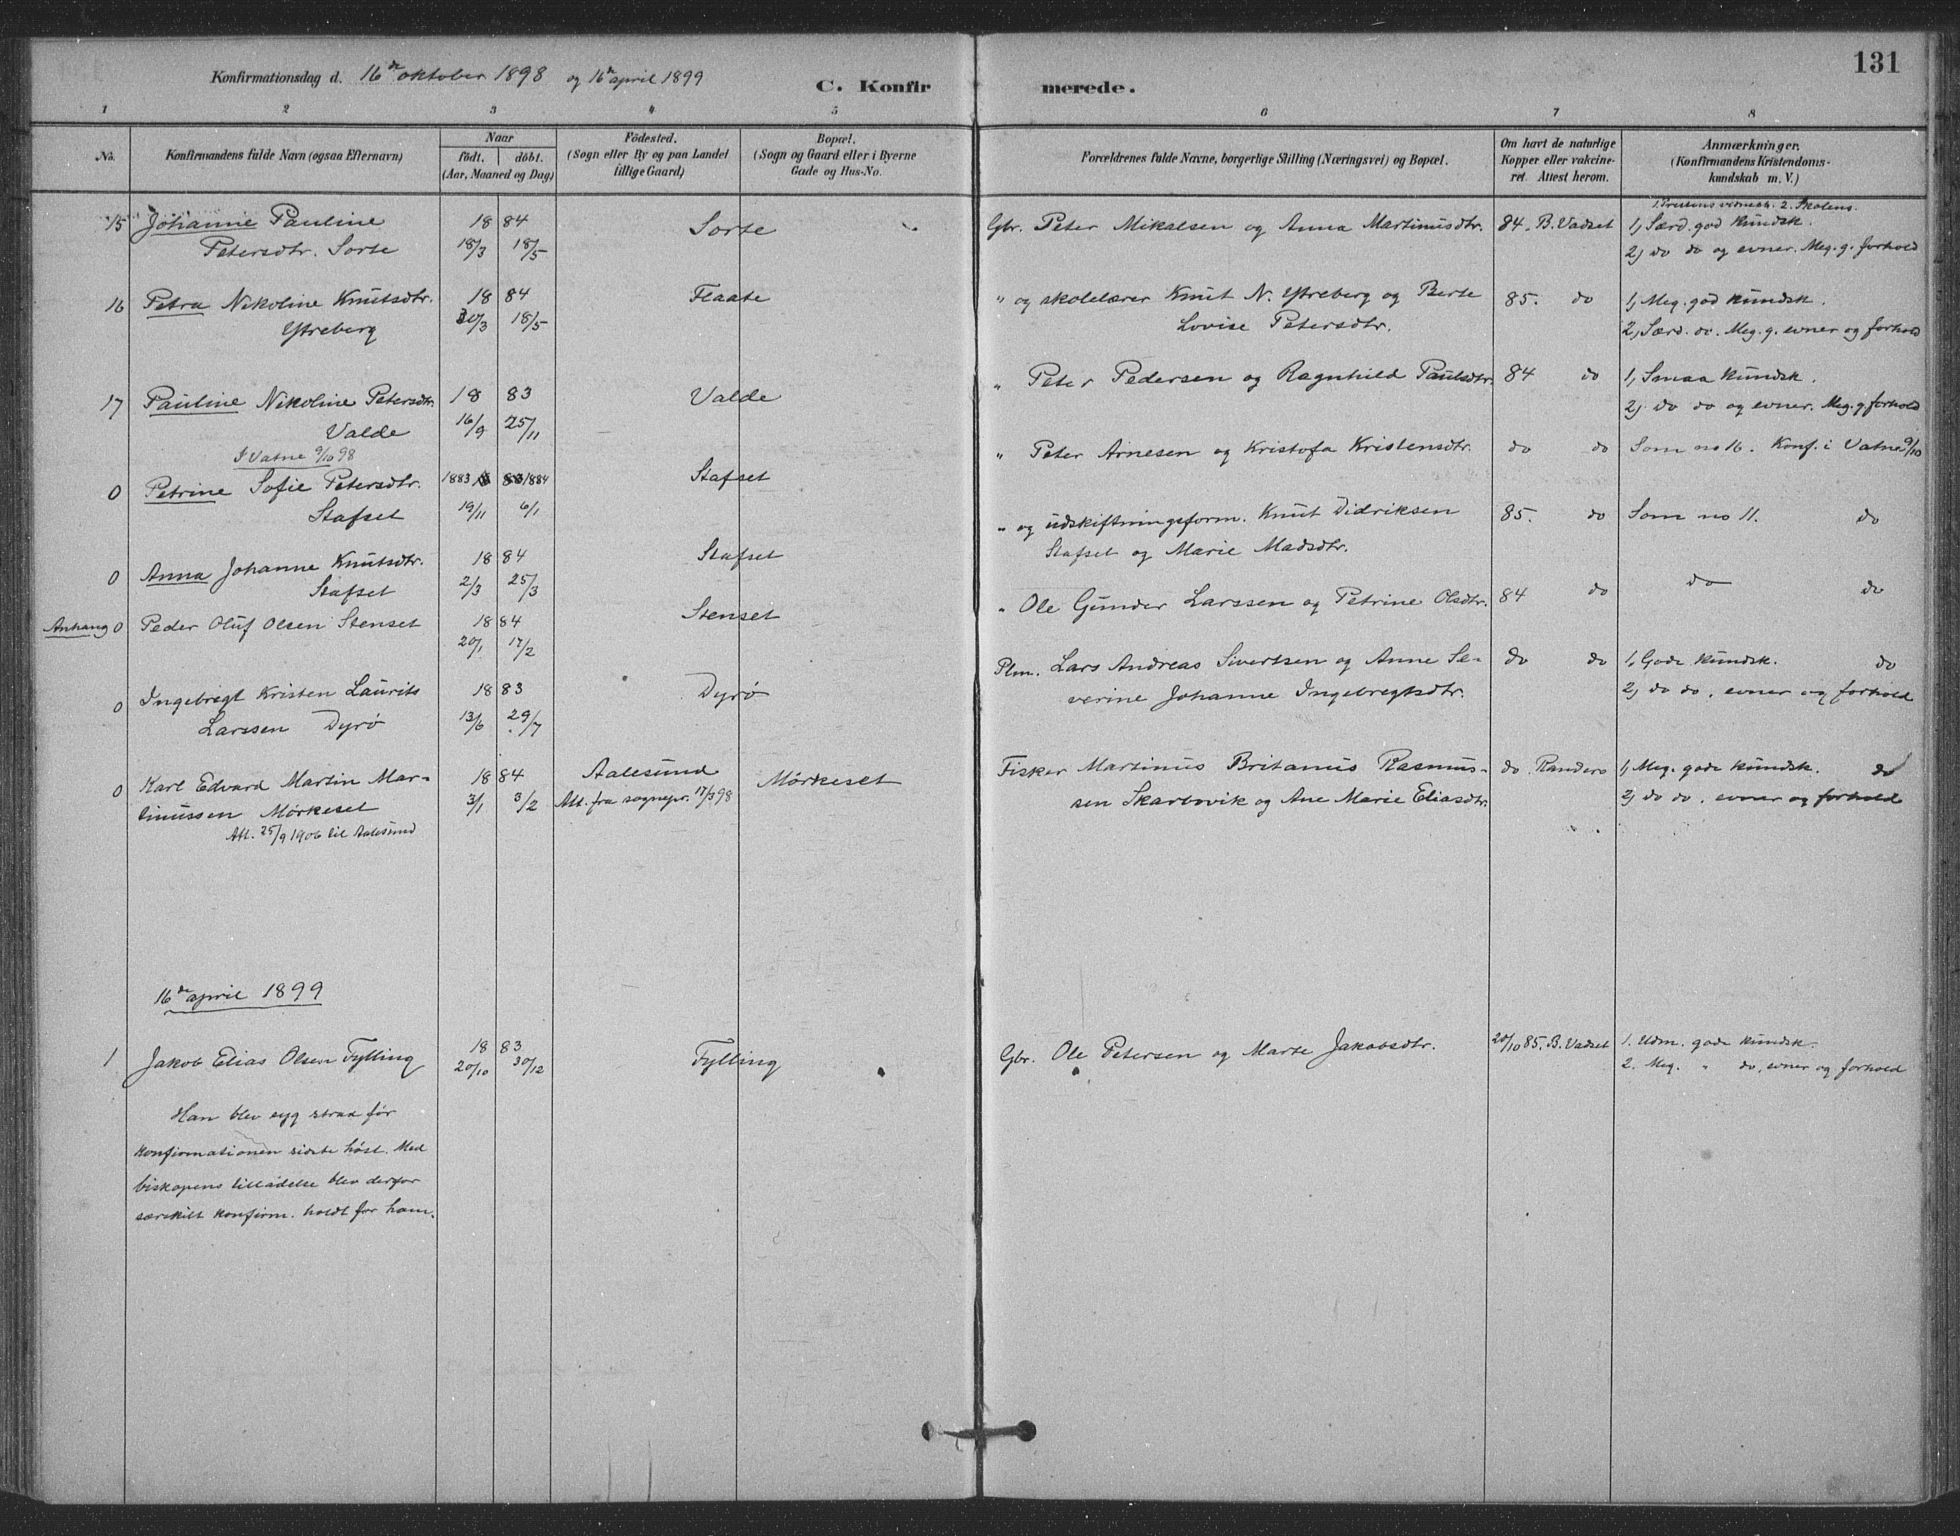 131
Konfirmationsdag d. 16de oktober 1898 og 16de april 1899
C. Konfirmerede.
1 2 3 4 5 6 7 8
No.
Konfirmandens fulde Navn (ogsaa Efternavn)
Naar
födt. döbt.
(Aar, Maaned og Dag)
Födested.
(Sogn eller By og paa Landet
tillige Gaard)
Bopæl.
(Sogn og Gaard eller i Byerne
Gade og Hus-No.
Forældrenes fulde Navne, borgerlige Stilling (Næringsvei) og Bopæl.
Om havt de naturlige
Kopper eller vakcine-
ret. Attest herom.
Anmærkninger.
(Konfirmandens Kristendoms-
kundskab m. V.)
1. Prestens vidnesb. 2. Skolens.
15 Johanne Pauline 18 84 Sorte Gbr. Peter Mikalsen og Anna Martinusdtr. 84. B. Vadset 1, Særd. god kundsk.
Petersdtr. Sorte 18/3 18/5 2, do do og evner. Meg. g. forhold
16 Petra Nikoline Knutsdtr. 18 84 Flaate " og skolelærer Knut N. Ytreberg og Berte 85. do 1, Meg. god kundsk.
Ytreberg 20/3 18/5 Lovise Petersdtr. 2, Særd. do. Meg. g. evner og forhold
17 Pauline Nikoline Petersdtr. 18 83 Valde " Peter Pedersen og Ragnhild Paulsdtr. 84 do 1, Smaa kundsk.
Valde 16/9 25/11 2, do do og evner. Meg. g. forhold
I Vatne 9/10 98
0 Petrine Sofie Petersdtr. 1883 1884 Stafset " Peter Arnesen og Kristofa Kristensdtr. do do Som no 16. Konf. i Vatne 9/10
Stafset 19/11 6/1
0 Anna Johanne Knutsdtr. 18 84 Stafset " og udskiftningsform. Knut Didriksen 85. do Som no 11. do
Stafset 2/3 25/3 Stafset og Marie Madsdtr.
Anhang 0 Peder Oluf Olsen Stenset 18 84 Stenset " Ole Gunder Larssen og Petrine Olsdtr. 84 do do do
20/1 17/2
0 Ingebregt Kristen Laurits 18 83 Dyrø Plm. Lars Andreas Sivertsen og Anne Se- do do 1, Gode kundsk. do
Larssen Dyrø 13/6 29/7 verine Johanne Ingebregtsdtr. 2, do do, evner og forhold
0 Karl Edvard Martin Mar- 18 84 Aalesund Mørkeset Fisker Martinus Britanus Rasmus- do. Randers 1, Meg. gode kundsk. do
tinussen Mørkeset 3/1 3/2 Att. fra sognepr. 17/3 98 sen Skarbøvik og Ane Marie Eliasdtr. 2, do do, evner og forhold
Att. 25/9 1906 til Aalesund
16de april 1899
1 Jakob Elias Olsen Fylling 18 83 Fylling Gbr. Ole Petersen og Marte Jakobsdtr. 20/10 85. B. Vadset 1. Udm. gode kundsk.
20/10 30/12 2. Meg. " do, evner og forhold
Han blev syg strax før
konfirmationen sidste høst. Med
biskopens tilladelse blev derfor
særskilt konfirm. holdt for ham.